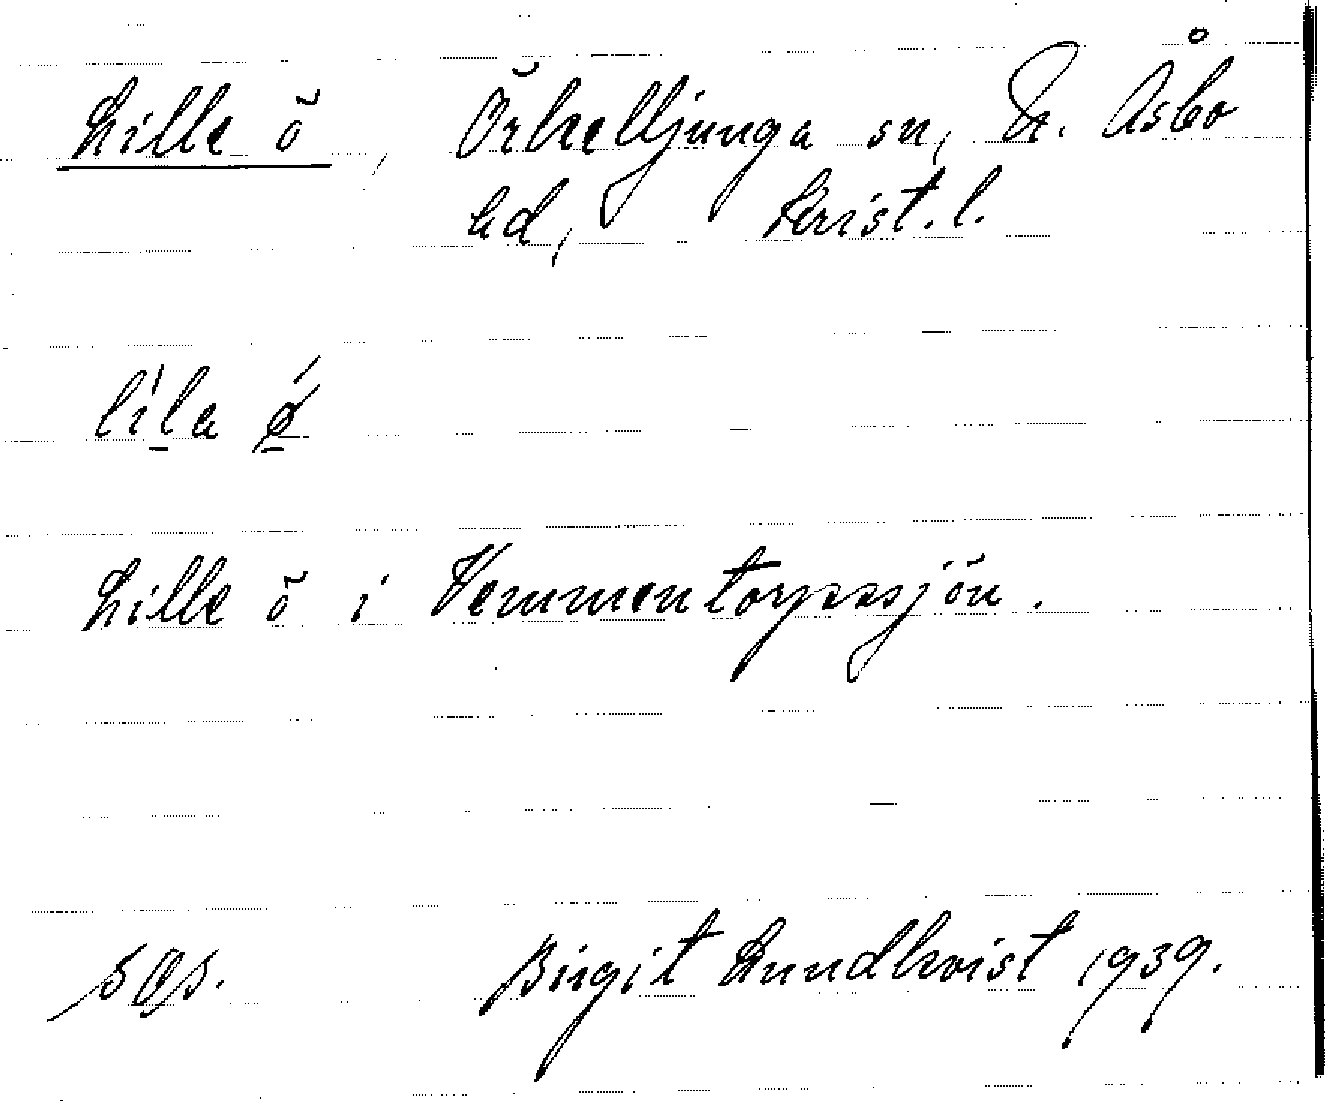 Lille ö, Örkelljunga sn, N. Åsbo
hd, Krist. l.
líla ǿ
Lille ö i Vemmentorpssjön.
Birgit Lundkvist 1939.